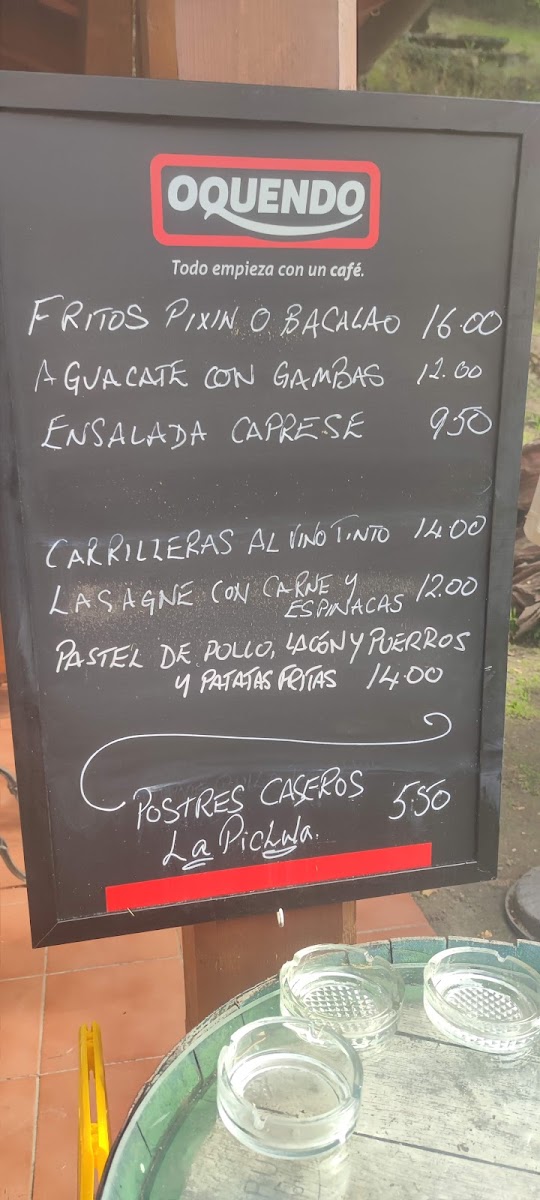 OQUENDO
Todo empieza con un café.
FRITOS PIXIN O BACALAO 16.00
AGUACATE CON GAMBAS 12.00
ENSALADA CAPRESE 950
CARRILLERAS AL VINO TINTO 14.00
LASAGNE CON CARNE Y
ESPINACAS 12.00
PASTEL DE POLLO, LACÓN Y PUERROS
Y PATATAS FRITAS 14.00
POSTRES CASEROS 5.50
La